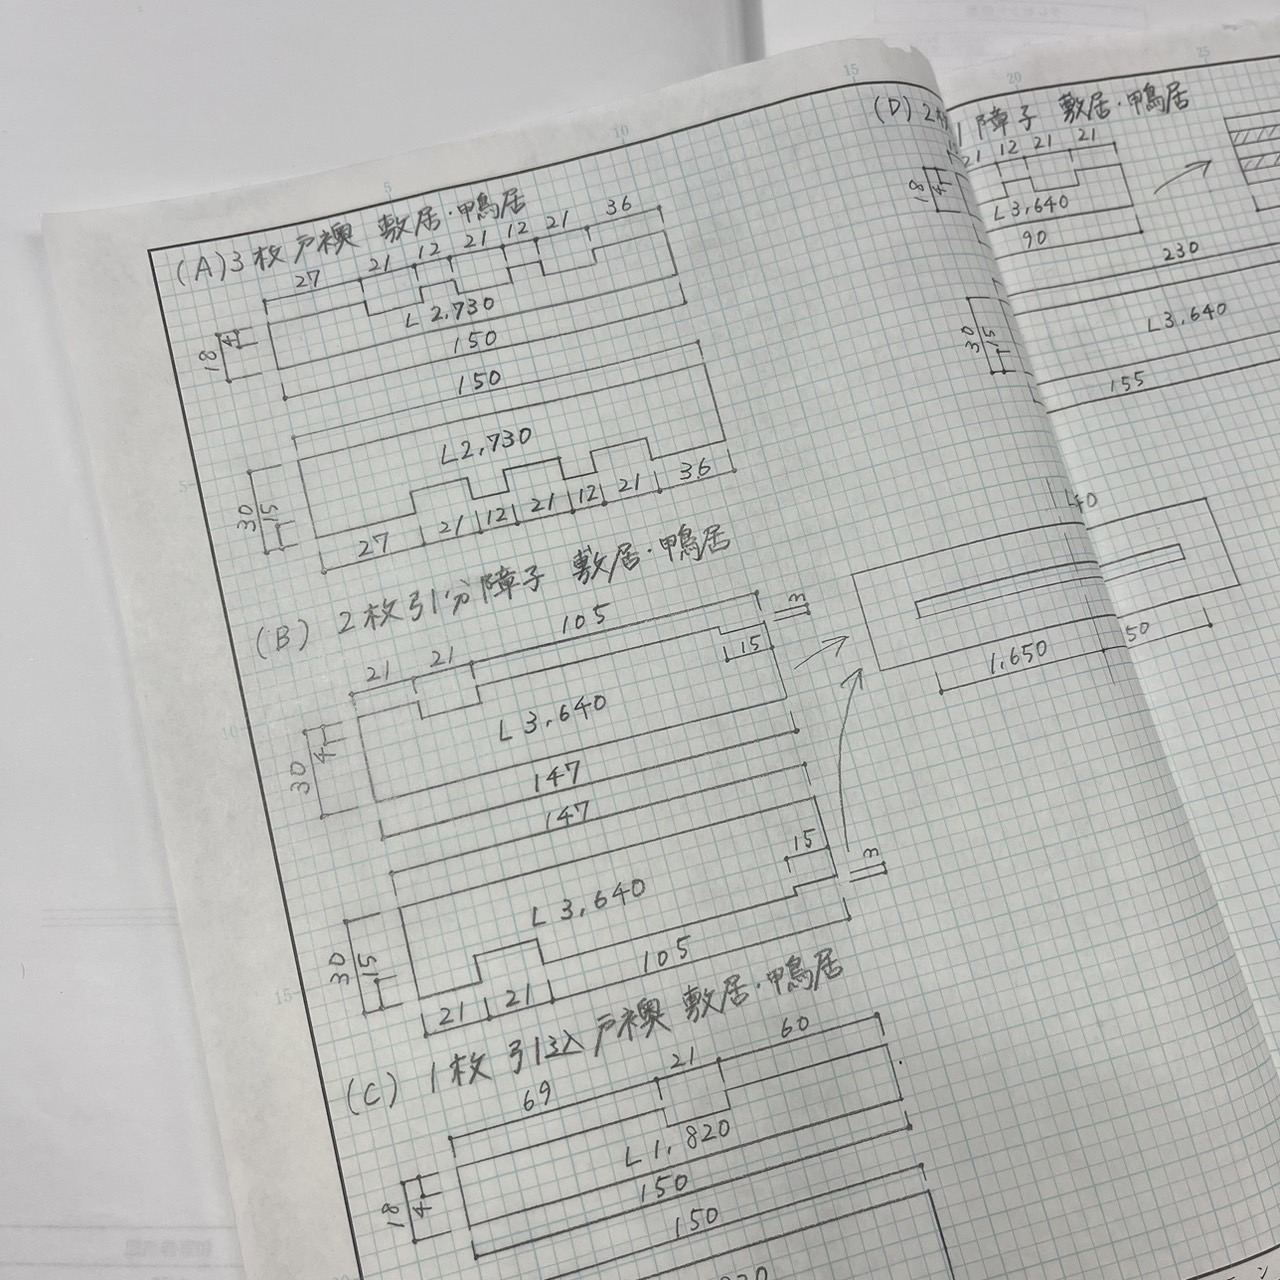 5
10
15
20
25
(A) 3枚戸襖 敷居・鴨居
27 21 12 21 12 21 36
18 4
L 2,730
150
150
L 2,730
30 15
27 21 12 21 12 21 36
5
(B) 2枚引分障子 敷居・鴨居
21 21 105 3
15
30 4
L 3,640
10
147
147
L 3,640
15 3
30 15
21 21 105
15
(C) 1枚引込戸襖 敷居・鴨居
69 21 60
18 4
L 1,820
150
150
(D) 2
障子 敷居・鴨居
21 12 21 21
18 4
L 3,640
90
230
30 15
L 3,640
155
1,650
50